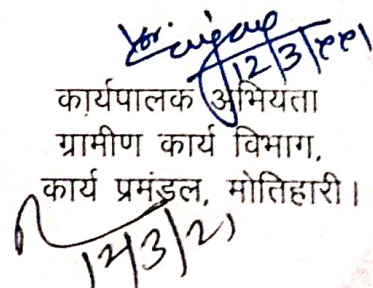 12/3/२१
कार्यपालक अभियंता
ग्रामीण कार्य विभाग,
कार्य प्रमंडल, मोतिहारी।
12/3/21